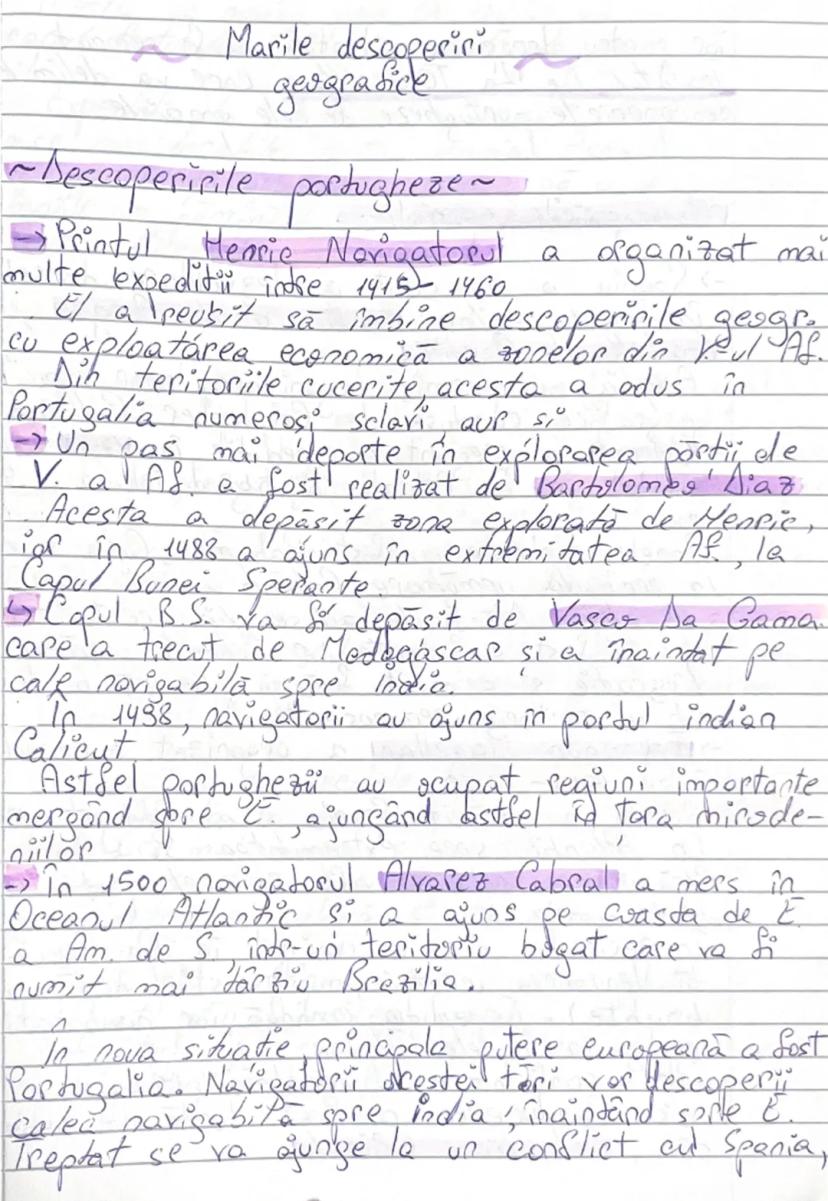 Marile descoperiri
geografice
~Descoperirile portugheze~
→ Printul Henric Navigatorul a organizat mai
multe expediții între 1415- 1460
El a reușit să îmbine descoperirile geogr.
cu exploatarea economică a zonelor din V-ul Af.
Din teritoriile cucerite, acesta a adus în
Portugalia numeroși sclavi aur și
→ Un pas mai departe în explorarea părții de
V. a Af. a fost realizat de Bartolomeo Diaz
Acesta a depăsit zona explorată de Henric,
iar în 1488 a ajuns în extremitatea Af., la
Capul Bunei Speranțe.
↳ Capul B.S. va fi depăsit de Vasco Da Gama.
care a trecut de Madagascar și a înaintat pe
cale navigabilă spre India.
În 1498, navigatorii au ajuns în portul indian
Calicut
Astfel portughezii au ocupat regiuni importante
mergând spre E, ajungând astfel în țara mirode-
niilor
→ în 1500 navigatorul Alvarez Cabral a mers în
Oceanul Atlantic și a ajuns pe coasta de E.
a Am. de S, într-un teritoriu bogat care va fi
numit mai târziu Brazilia.
În noua situație, principala putere europeană a fost
Portugalia. Navigatorii acestei țări vor descoperii
calea navigabilă spre India, înaintând spre E.
Treptat se va ajunge la un conflict cu Spania,